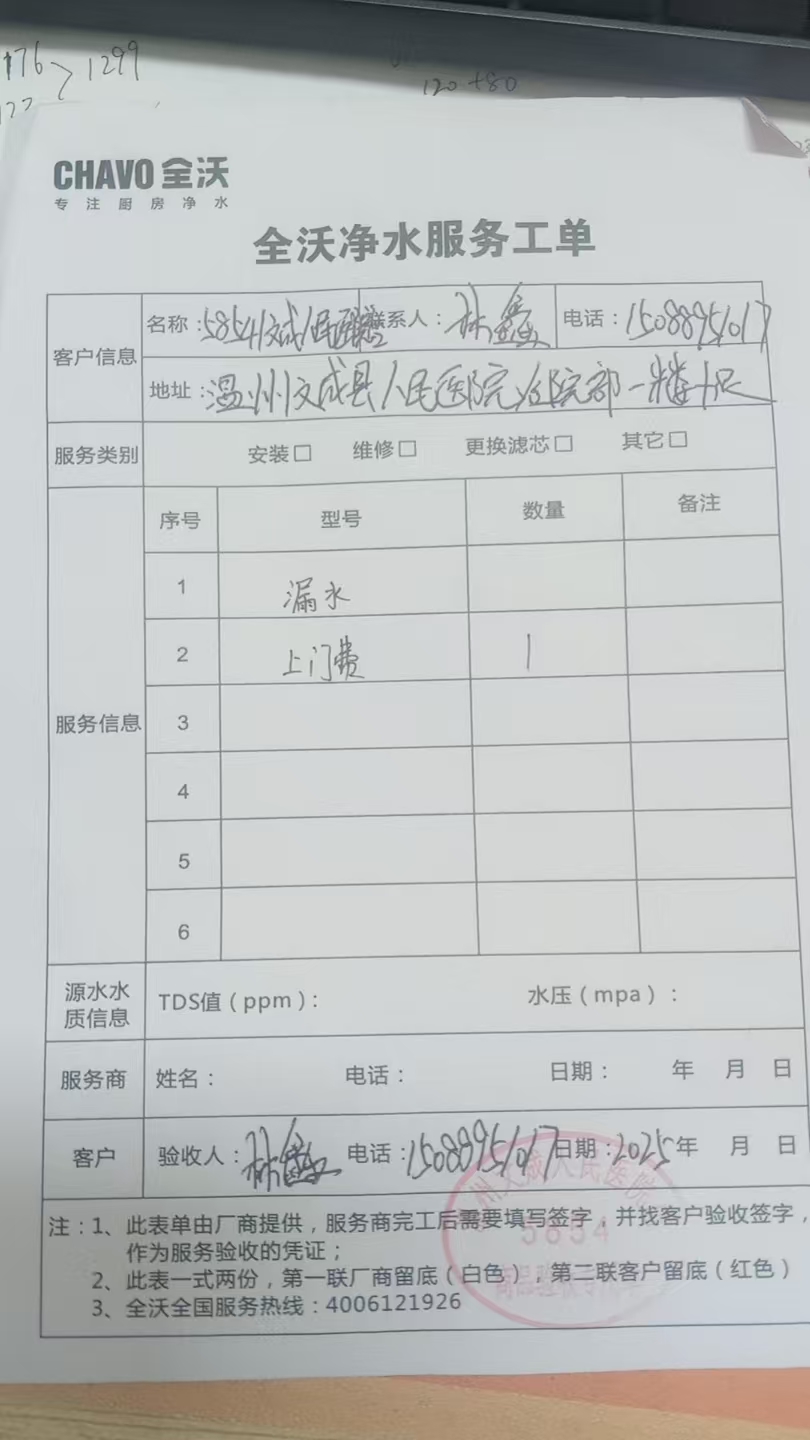 176 > 1299
120 +80
CHAVO 全沃
专注厨房净水
全沃净水服务工单
客户信息
名称：5854文成人民医院 联系人：林鑫 电话：15088951017
地址：温州文成县人民医院住院部一楼
服务类别 安装□ 维修□ 更换滤芯□ 其它□
服务信息
序号 型号 数量 备注
1 漏水
2 上门费 1
3
4
5
6
源水水质信息
TDS值（ppm）： 水压（mpa）：
服务商 姓名： 电话： 日期： 年 月 日
客户 验收人：林鑫 电话：15088951017 日期：2025年 月 日
注：1、此表单由厂商提供，服务商完工后需要填写签字，并找客户验收签字，
作为服务验收的凭证；
2、此表一式两份，第一联厂商留底（白色），第二联客户留底（红色）
3、全沃全国服务热线：4006121926
州文成人民医院
5854